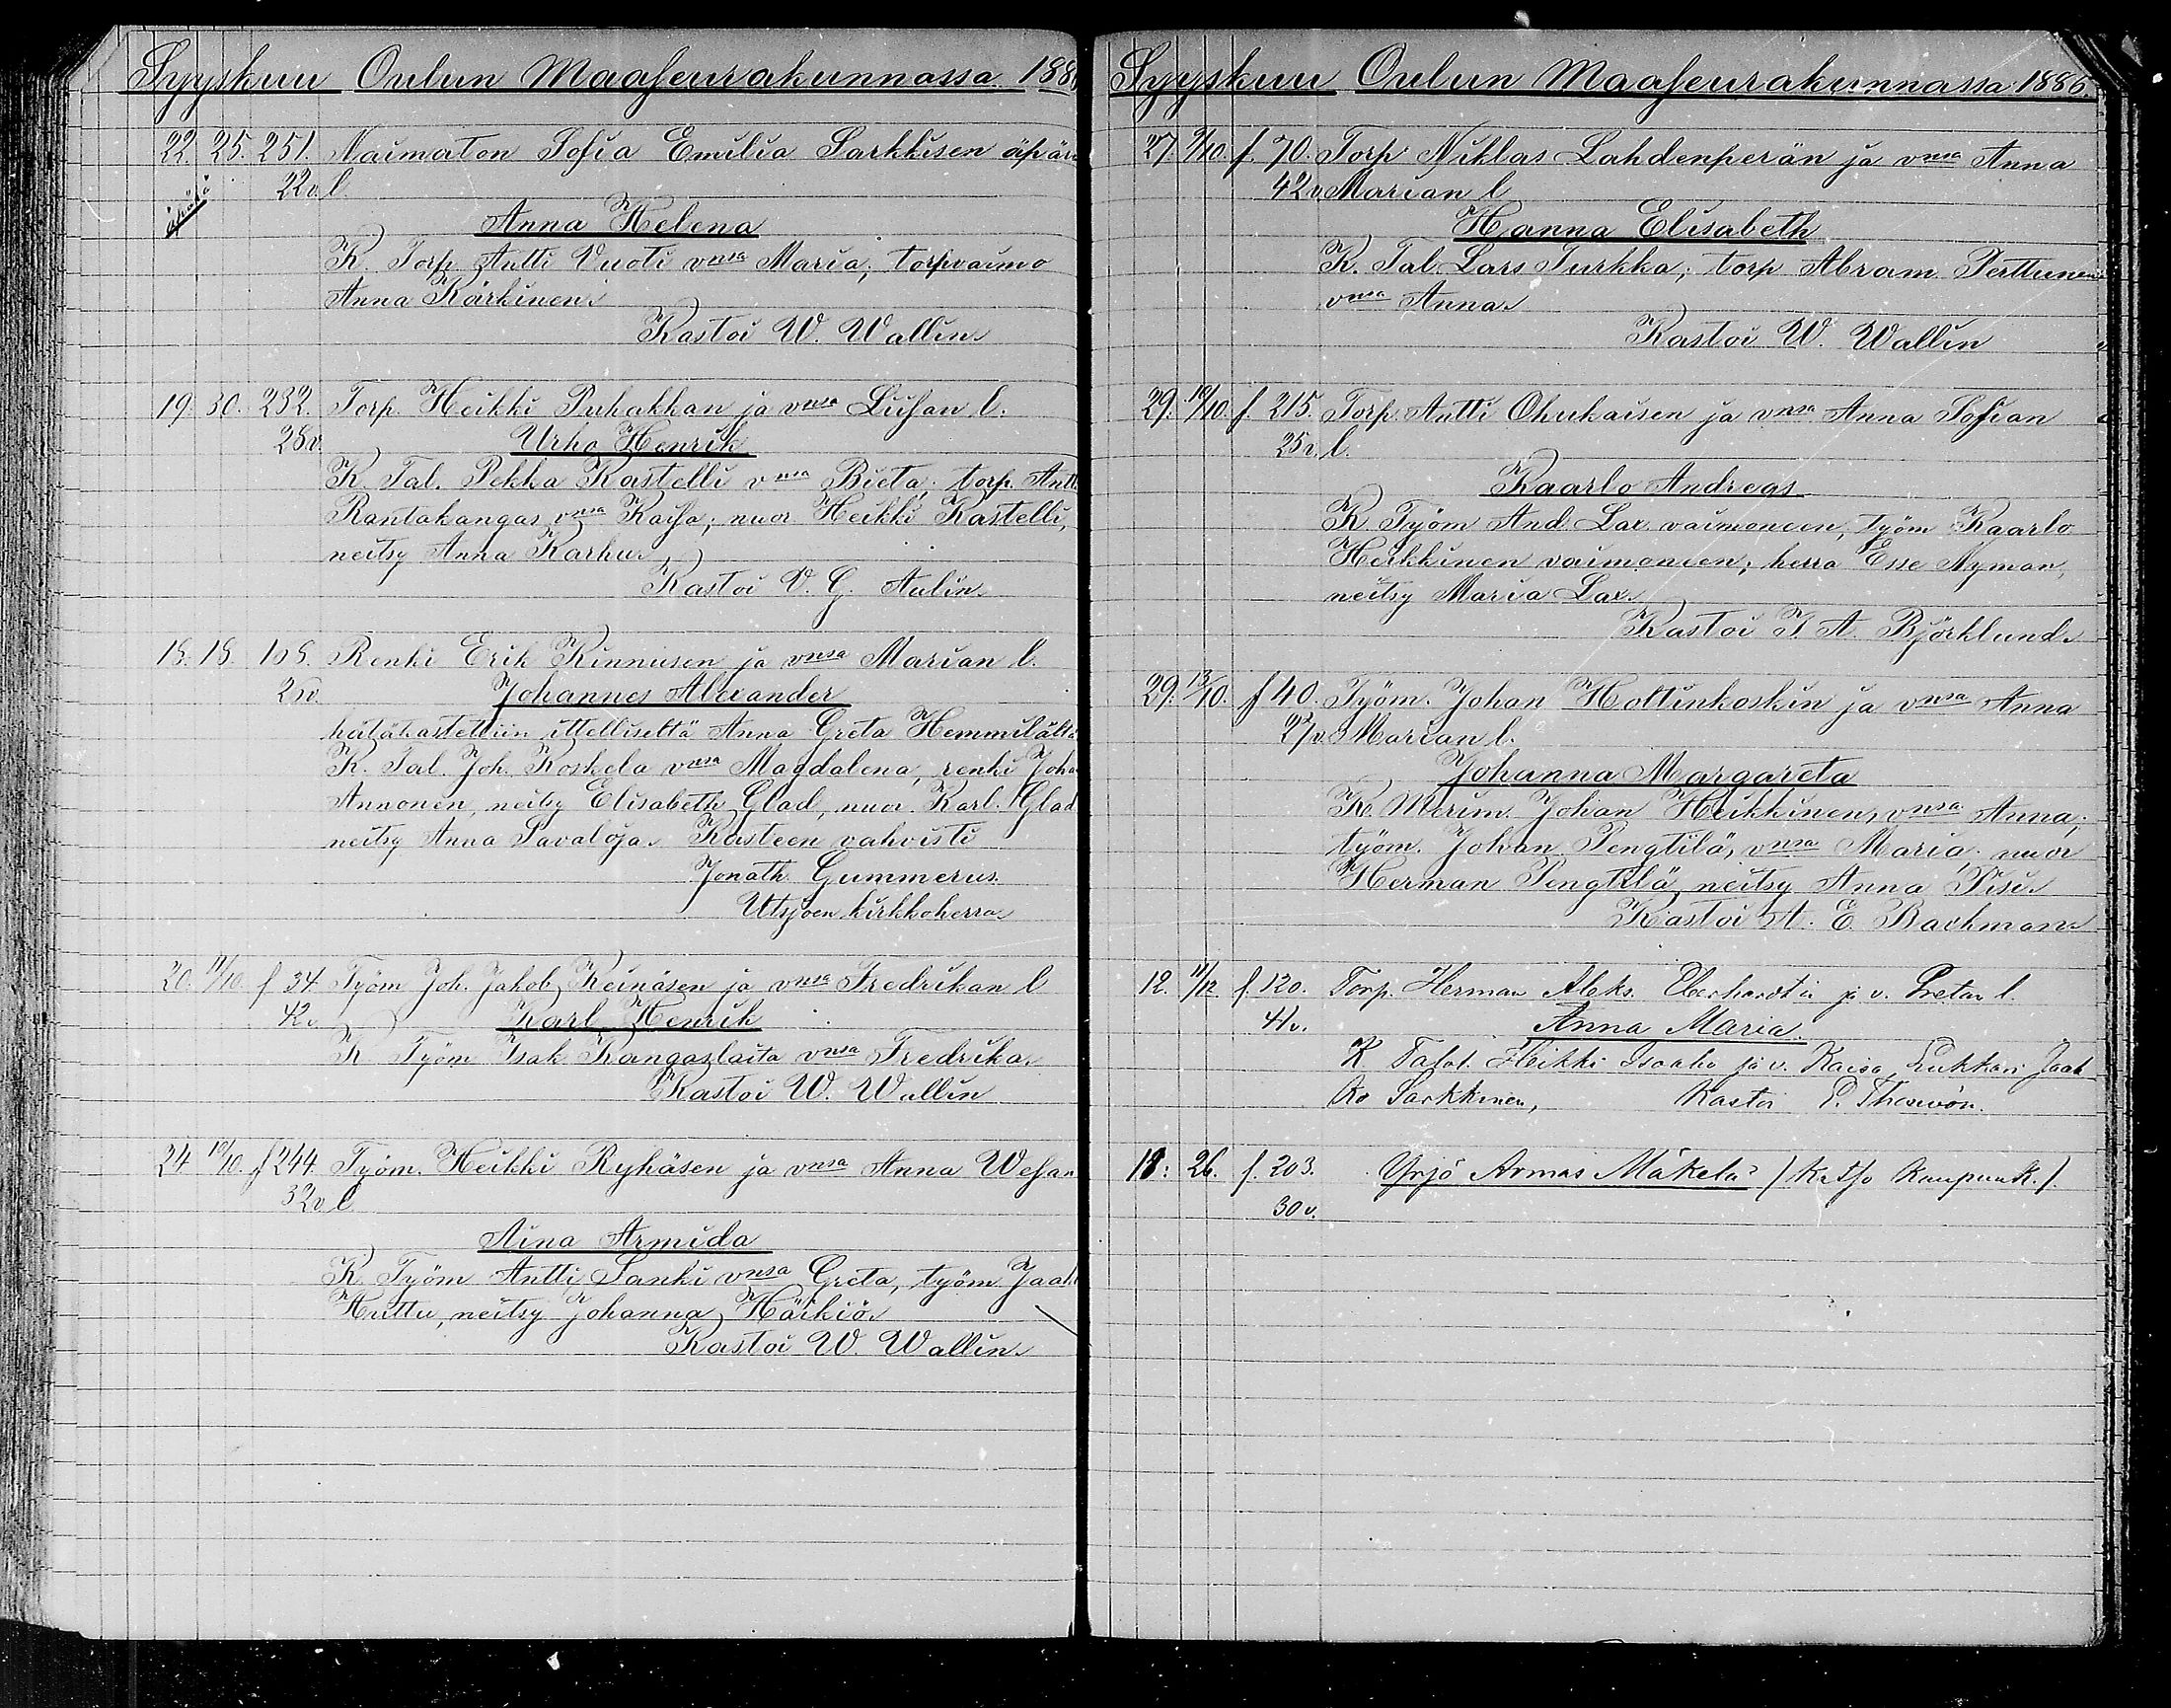 Syyskuu Oulun Maaseurakunnassa 188
22. 25. 251. Naimaton Sofia Emilia Sarkkisen äpärä
22 v. l.
äpärä
Anna Helena
K. Torp. Antti Vuoti vnsa Maria; torpvaimo
Anna Kärkinen.
Kastoi W. Wallin.
19. 30. 232. Torp. Heikki Puhakkan ja vnsa Liisan l.
28 v. Urho Henrik
K. Tal. Pekka Kastelli vnsa Brita; torp. Antti
Rantakangas vnsa Kaisa; nuor Heikki Kastelli,
neitsy Anna Karhu.
Kastoi V. G. Aulin.
18. 18. 108. Renki Erik Kinnusen ja vnsa Marian l.
Johannes Alexander
hätäkastettiin ittelliseltä Anna Greta Hemmilältä
K. Tal. Joh. Koskela vnsa Magdalena, renki Joha
Annonen, neitsy Elisabeth Glad, nuor. Karl. Glad
neitsy Anna Savaloja. Kasteen vahvisti
Jonath. Gummerus.
Utsjoen kirkkoherra.
20. 11/10. f 34. Työm Joh. Jakob Keinäsen ja vnsa Fredrikan l
42 v. Karl Henrik
K. Työm Isak Kangaslaita vnsa Fredrika.
Kastoi W. Wallin
24 10/10. f 244. Työm. Heikki Ryhäsen ja vnsa Anna Wesan
32 v l
Aina Armida
K. Työm Antti Lanki vnsa Greta, työm Jaak
Huttu, neitsy Johanna Häikiö.
Kastoi W. Wallin.
Syyskuu Oulun Maaseurakunnassa 1886.
27. 9/10. f. 70. Torp Niklas Lahdenperän ja vnsa Anna
42 v. Marian l
Hanna Elisabeth
K. Tal Lars Turkka; torp Abram Perttunen
vnsa Anna.
Kastoi W. Wallin
29. 10/10. f. 215. Torp. Antti Ohukaisen ja vnsa Anna Sofian
25 v. l.
Kaarlo Andreas
K Työm And. Lax vaimoneen, työm Kaarlo
Heikkinen vaimoneen; herra Esse Nyman,
neitsy Maria Lax.
Kastoi F. A. Björklund.
29. 13/10. f 40. Työm. Johan Holtinkoskin ja vnsa Anna
27 v. Marian l.
Johanna Margareta
K. Merim. Johan Heikkinen, vnsa Anna;
työm. Johan Pengtilä, vnsa Maria; nuor
Herman Pengtilä neitsy Anna Pisi.
Kastoi A. E. Bachman
12. 11/12. f. 120. Torp. Herman Aleks. Eberhardt'in ja v. Gretan l.
41 v. Anna Maria.
K. Talol. Heikki Isoaho ja v. Kaisa, Lukkari Jaak
ko Sarkkinen, Kastoi
18. 26. f. 203. Yrjö Armas Mäkelä / Katso Kaupunk. /.
30 v.